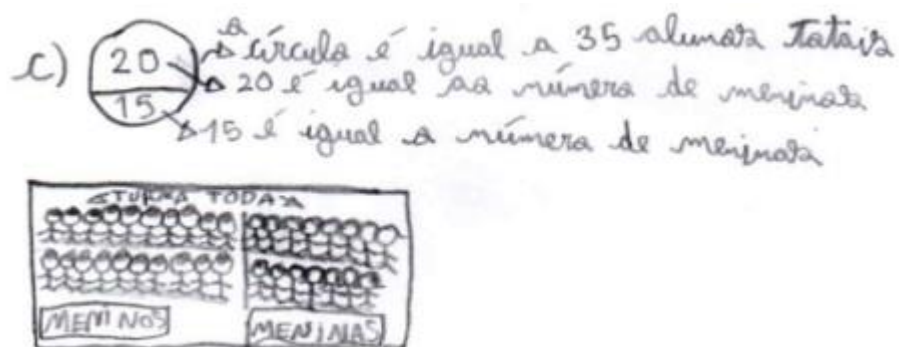 c) 20 o círculo é igual a 35 alunos totais
20 é igual ao número de meninos
15 15 é igual a número de meninas
<TURMA TODA>
MENINOS MENINAS